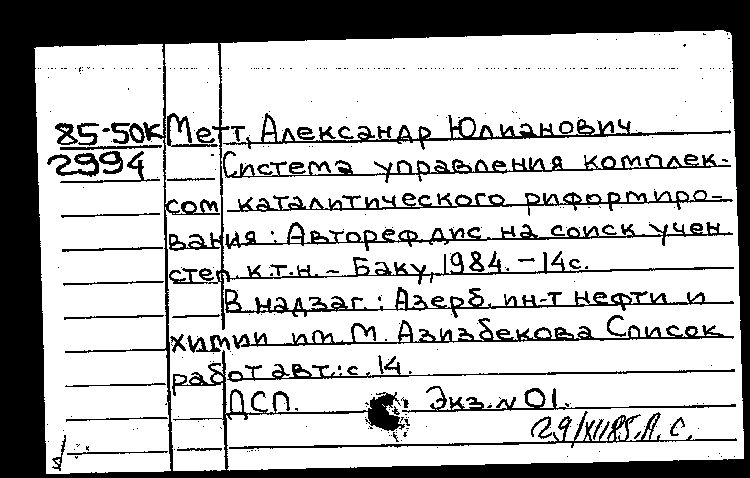 85-50К Метт, Александр Юлианович
2994 Система управления комплек-
сом каталитического риформиро-
вания: Автореф. дис. на соиск. учен
степ. к.т.н. - Баку, 1984. - 14 с.
В надзаг.: Азерб. ин-т нефти и
химии им. М. Азизбекова Список
работ авт.: с. 14.
ДСП. Экз. N 01.
29/XII85. Л. С.